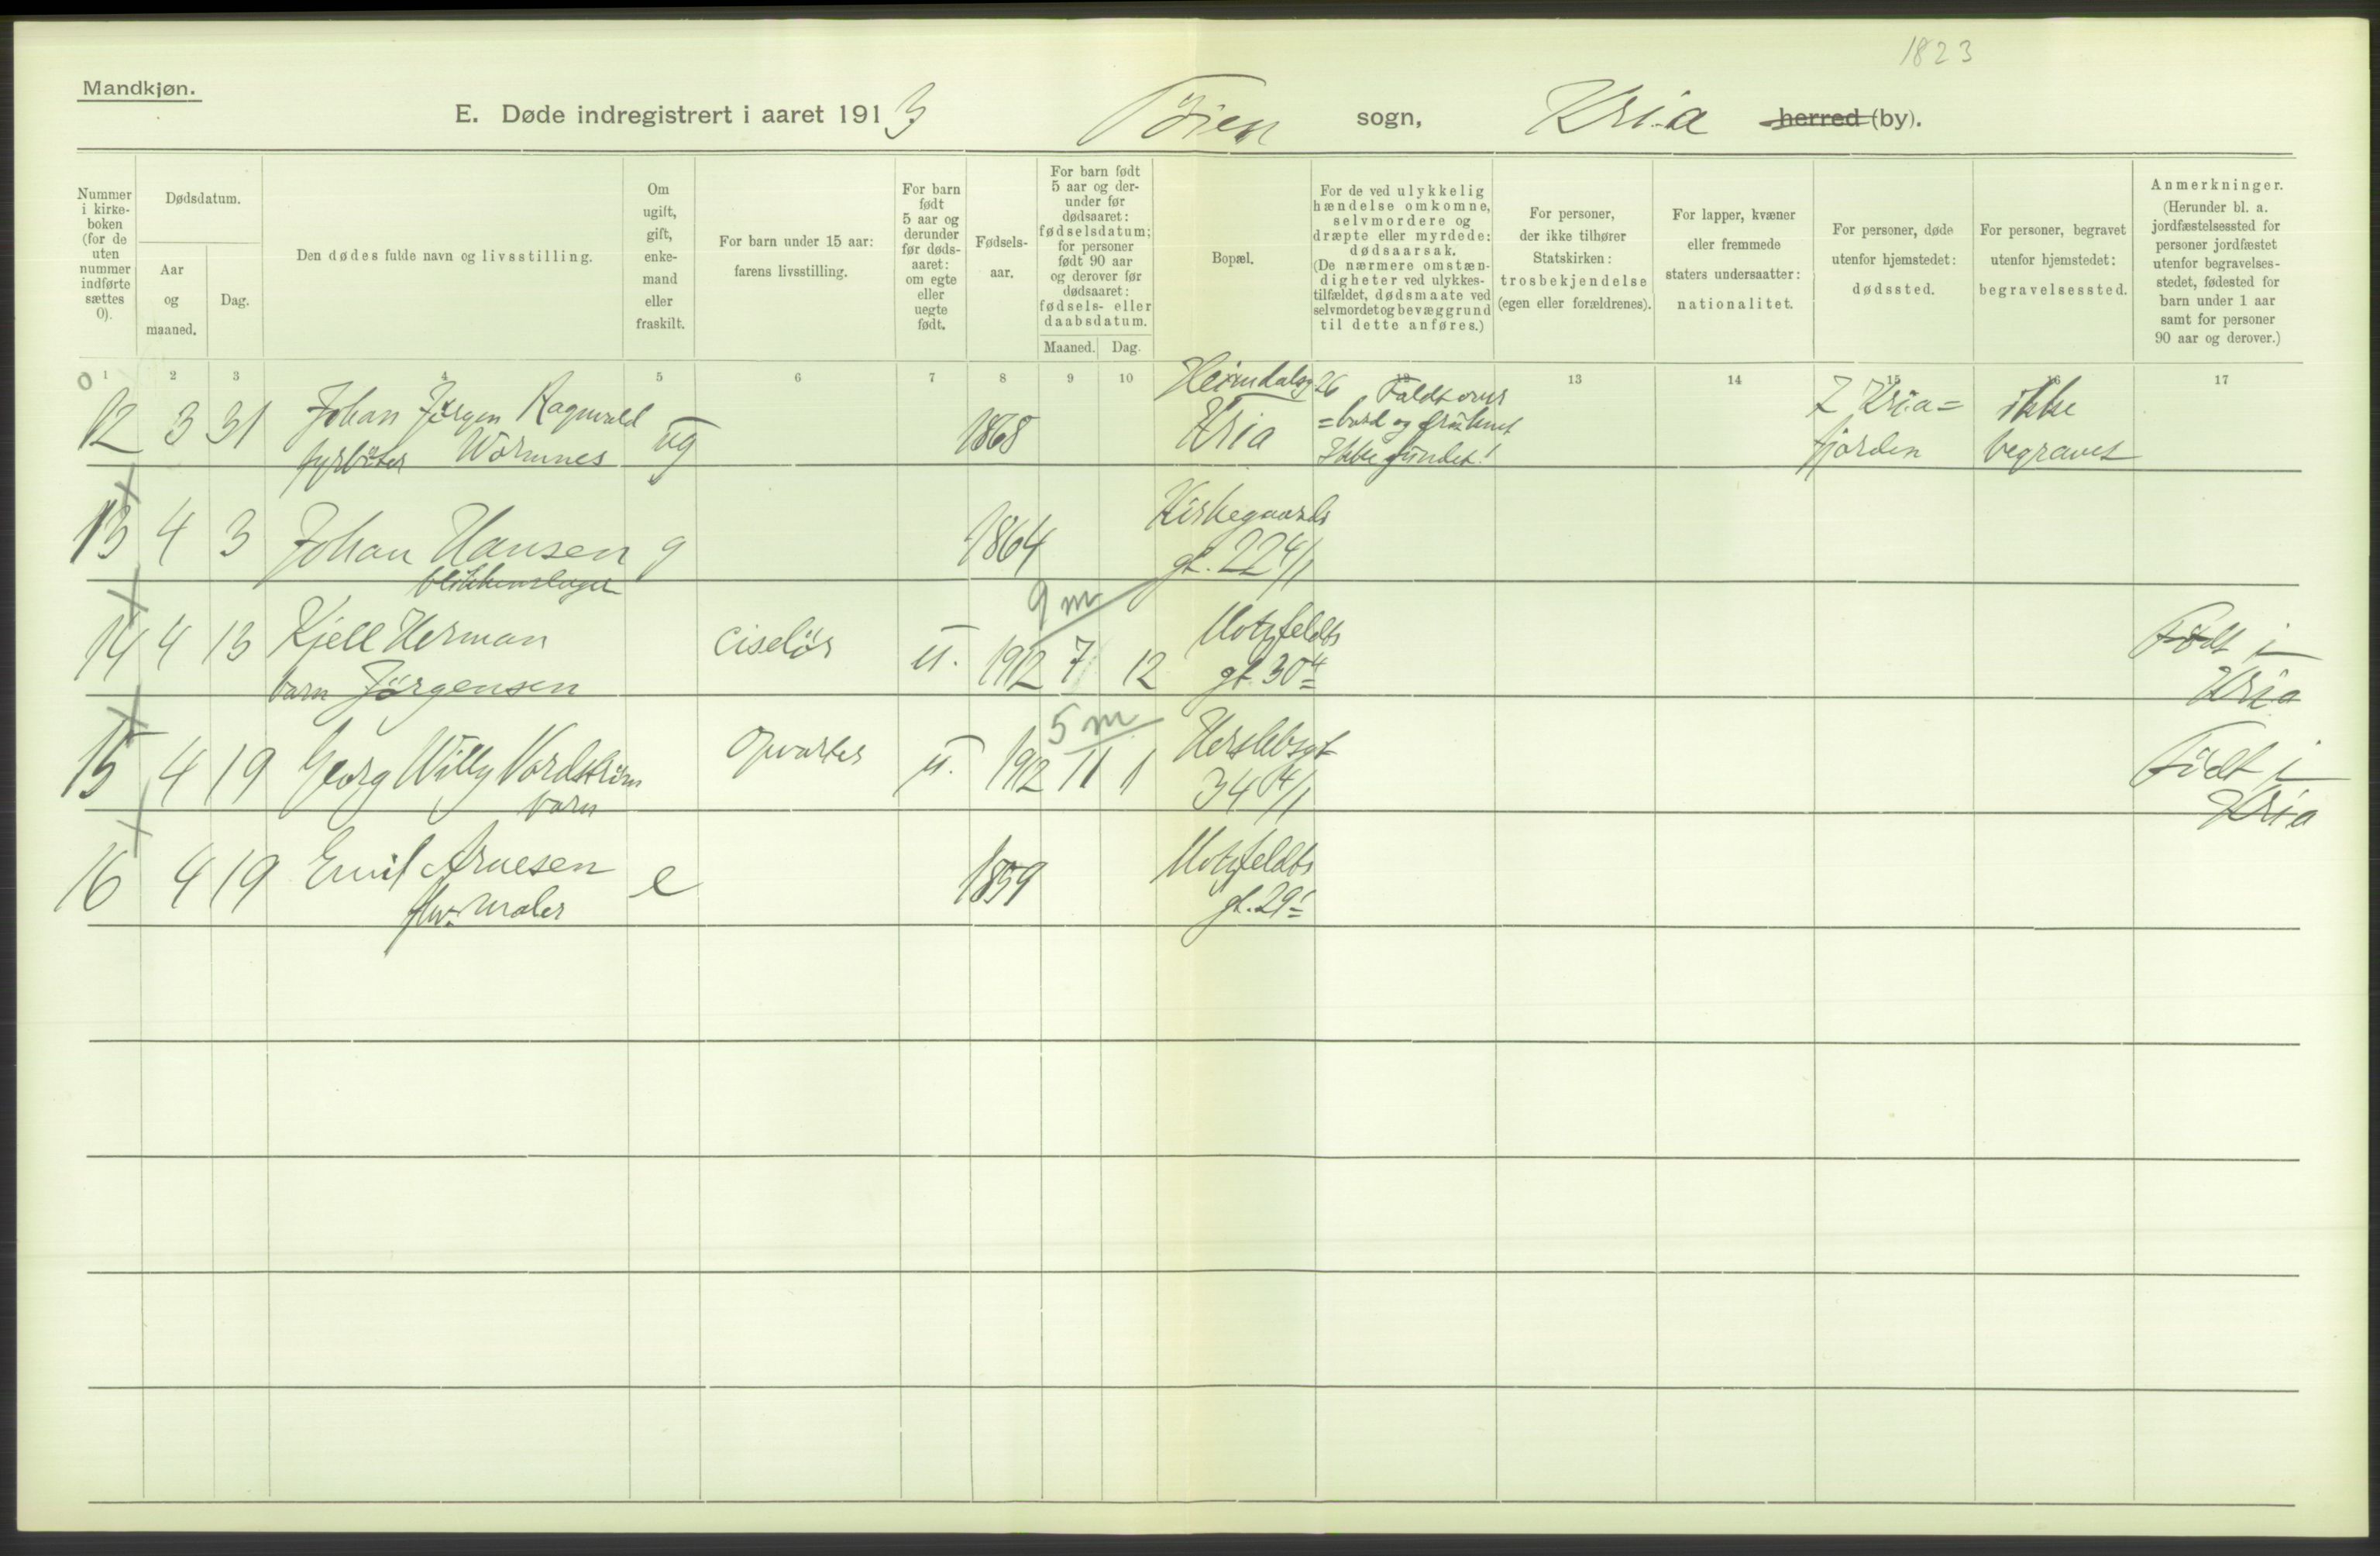 1823
Mandkjøn.
E. Døde indregistrert i aaret 1913 Tøien sogn, Kria herred (by).
Nummer i kirkeboken (for de uten nummer indførte sættes 0).
Dødsdatum.
Aar og maaned.
Dag.
Den dødes fulde navn og livsstilling.
Om ugift, gift, enkemand eller fraskilt.
For barn under 15 aar: farens livsstilling.
For barn født 5 aar og derunder før dødsaaret: om egte eller uegte født.
Fødselsaar.
For barn født 5 aar og derunder før dødsaaret: fødselsdatum; for personer født 90 aar og derover før dødsaaret: fødsels- eller daabsdatum.
Maaned. Dag.
Bopæl.
For de ved ulykkelig hændelse omkomne, selvmordere og dræpte eller myrdede: dødsaarsak. (De nærmere omstændigheter ved ulykkestilfældet, dødsmaate ved selvmordet og bevæggrund til dette anføres.)
For personer, der ikke tilhører Statskirken: trosbekjendelse (egen eller forældrenes).
For lapper, kvæner eller fremmede staters undersaatter: nationalitet.
For personer, døde utenfor hjemstedet: dødssted.
For personer, begravet utenfor hjemstedet: begravelsessted.
Anmerkninger. (Herunder bl. a. jordfæstelsessted for personer jordfæstet utenfor begravelsesstedet, fødested for barn under 1 aar samt for personer 90 aar og derover.)
0 1 2 3 4 5 6 7 8 9 10 12 13 14 15 16 17
12 3 31 Johan Jörgen Ragnvald ug 1868 Heimdalsg 26 Faldt over I Kria= ikke
fyrböter Wormnes Kria =bord og druknet fjorden begravet
Ikke fundet!
13 4 3 Johan Hansen g 1864 Kirkegaards
blikkenslager gt. 22 4/1
9 m
14 4 13 Kjell Herman ciselör u. 1912 7 12 Motzfeldts Födt i
barn Jörgensen gt. 30 4 Kria
5 m
15 4 19 Georg Willy Nordström Opvarter u. 1912 11 1 Herslebsgt Födt i
barn 34 4/1 Kria
16 4 19 Emil Arnesen e 1859 Motzfeldts
maler gt. 29